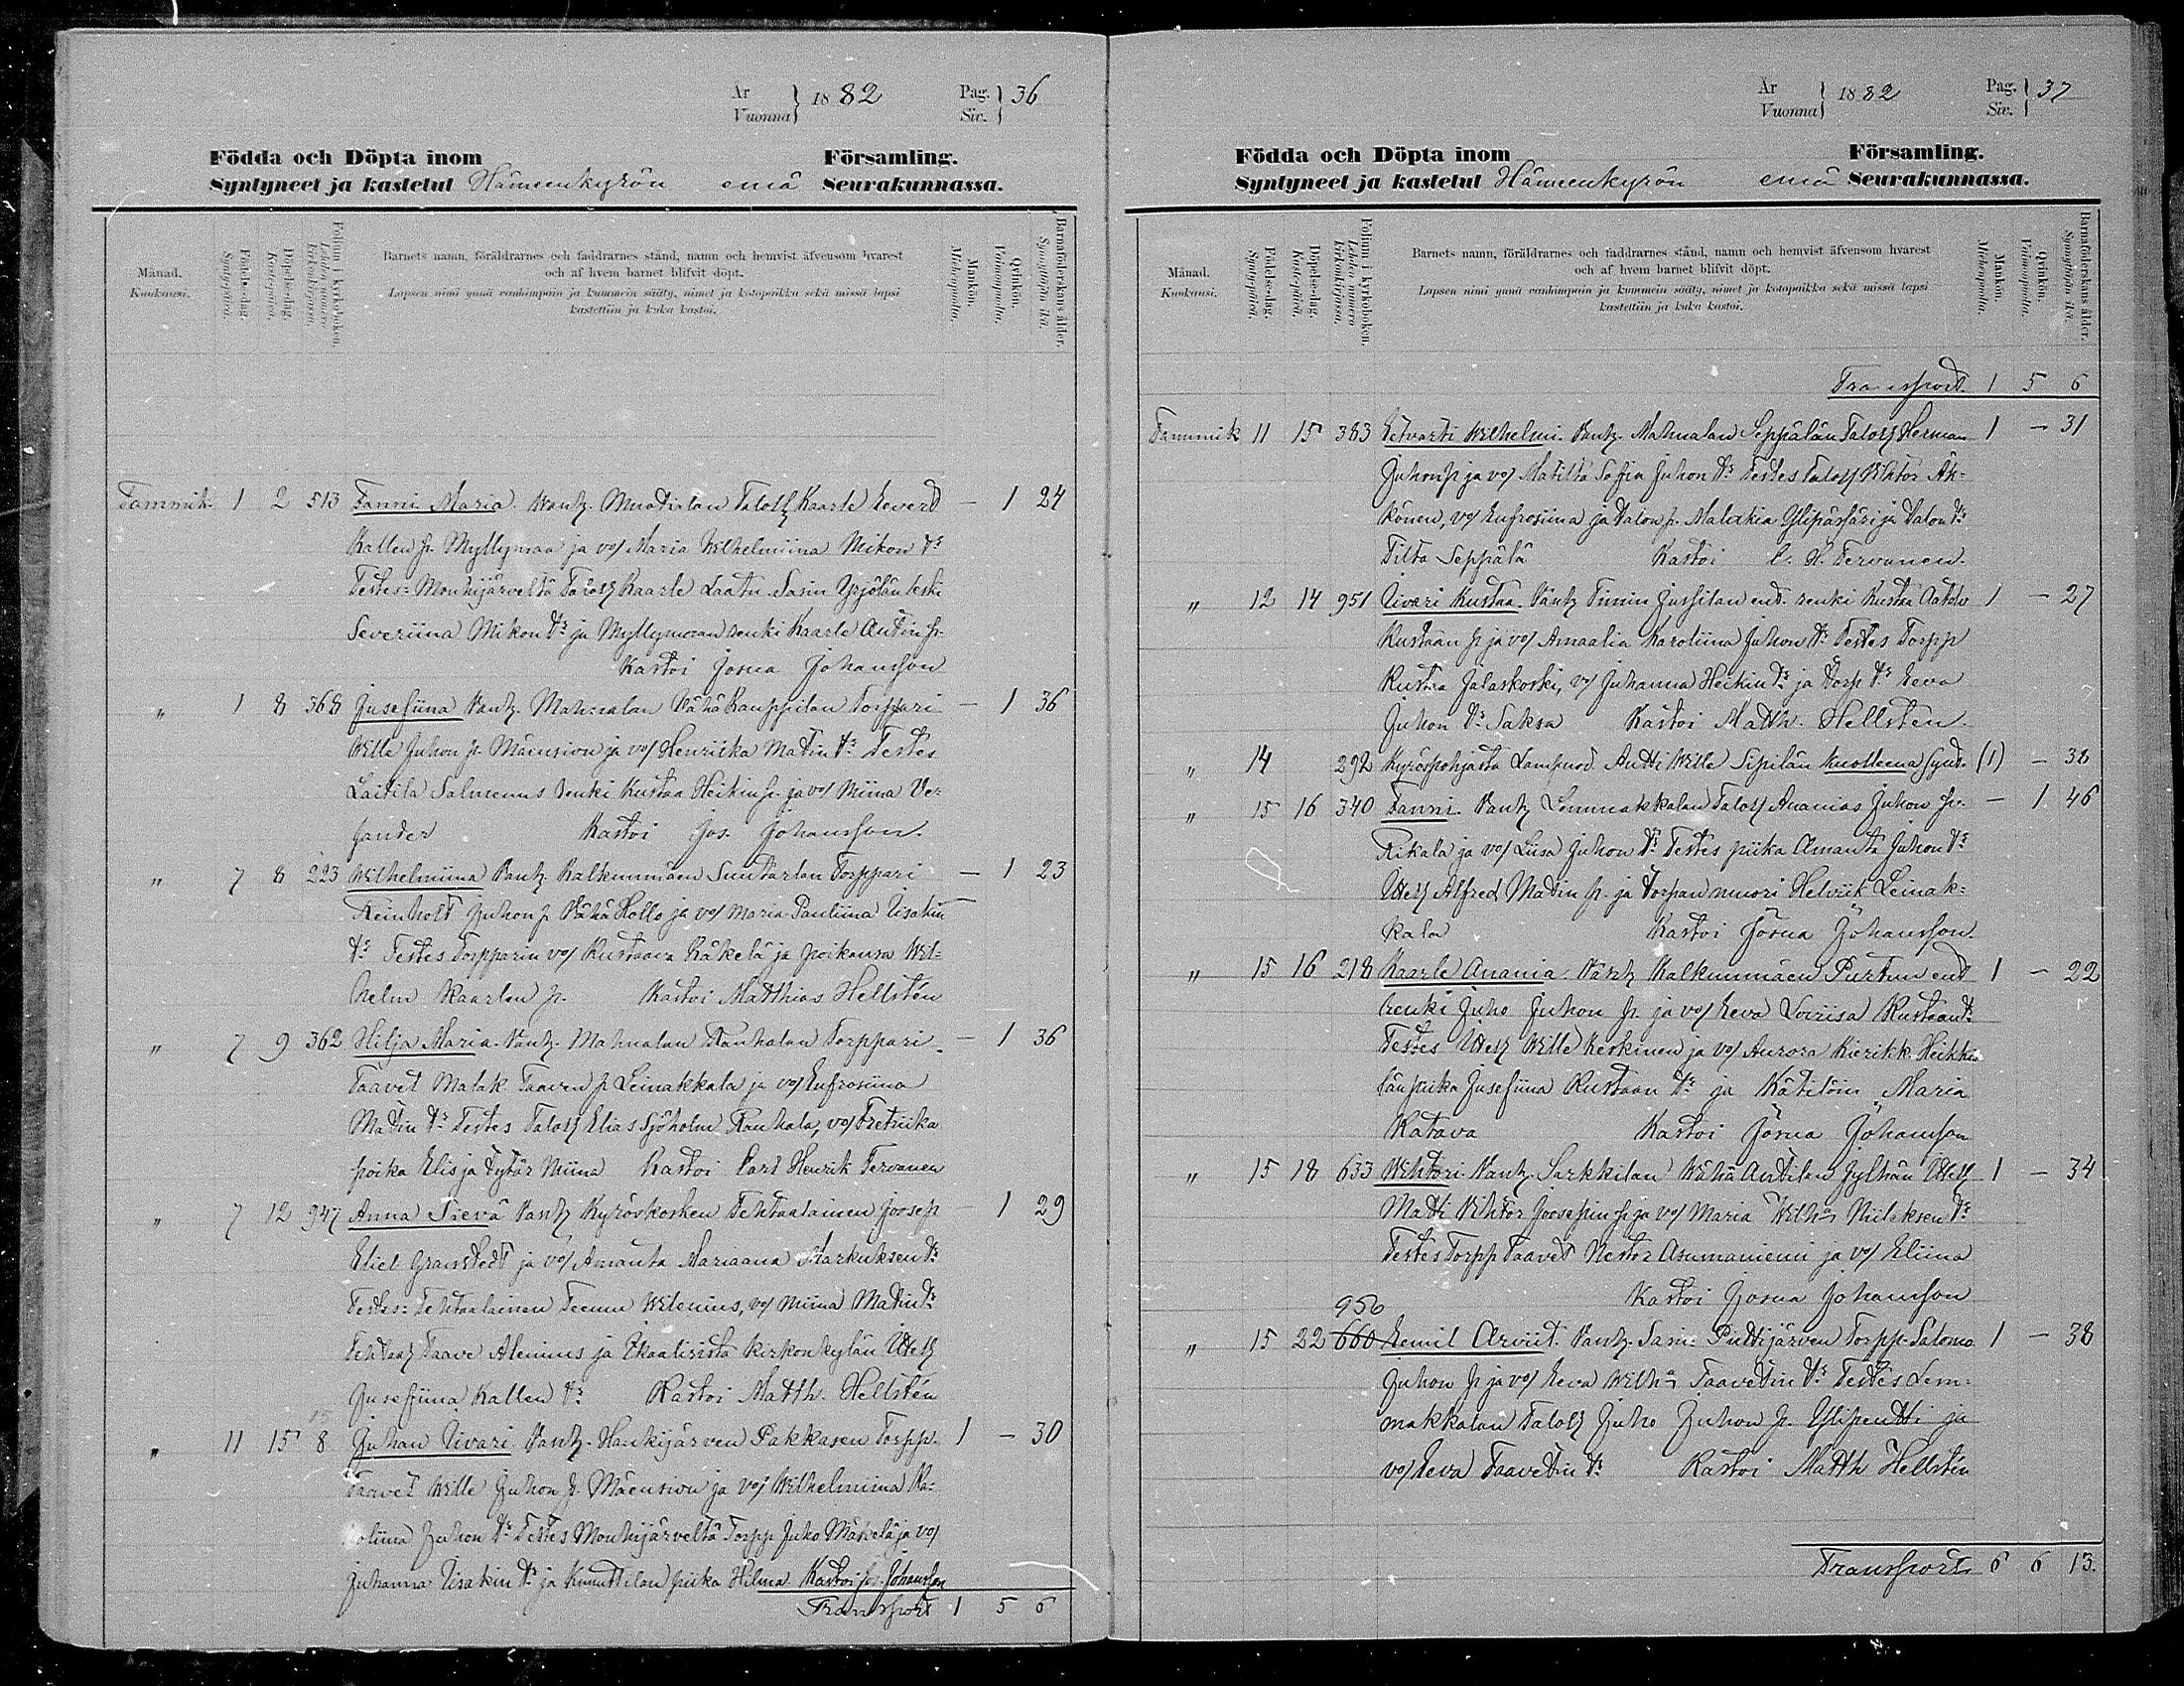 År Vuonna 1882 Pag. Siv. 36
Födda och Döpta inom Församling.
Syntyneet ja kastetut Hämeenkyrön emä Seurakunnassa.
Månad. Kuukausi.
Födelse-dag. Syntypäivä.
Döpelse-dag. Kastepäivä.
Folium i kyrkoboken. Lehden numero kirkonkirjassa.
Barnets namn, föräldrarnes och faddrarnes stånd, namn och hemvist äfvensom hvarest
och af hvem barnet blifvit döpt.
Lapsen nimi ynnä vanhimpain ja kummein sääty, nimet ja kotopaikka sekä missä lapsi
kastettiin ja kuka kastoi.
Mankön. Miehenpuolia.
Qvinkön. Vaimonpuolia.
Barnaföderskans ålder. Synnyttäjän ikä.
Tammik. 1 2 513 Fanni Maria. Vanh. Taloll Kaarle Eevert — 1 24
Kallen p. Myllymaa ja vo/ Maria Wilhelmiina Mikon tr
Testes: Mouhijärveltä Taloll Kaarle Laatu Sasin Yrjölän leski
Severiina Mikon tr ja Myllymaan renki Kaarle Antin p.
Kastoi Josua Johansson
" 1 8 368 Jusefiina Vanh. Mahnalan Vähä Rauppilan Torppari — 1 36
Wille Juhon p. Mäensivu ja vo/ Henriika Matin tr Testes
Laitila Salmenns renki Kustaa Heikin p. ja vo/ Miina Ve-
sander Kastoi Jos. Johansson.
" 7 8 223 Wilhelmiina Vanh. Kalkunmäen Suutarlan Torppari — 1 23
Reinholt Juhon p Vähä Hollo ja vo/ Maria Pauliina Iisakin
tr Testes Torpparin vo/ Kustaava Räkelä ja poikansa Wil-
helm Kaarlen p. Kastoi Matthias Hellstén
" 7 9 362 Hilja Maria. Vanh. Mahnalan Rauhalan Torppari — 1 36
Taavet Malak Taaven p Leinakkala ja vo/ Eufrosiina
Matin tr Testes Taloll Elias Sjöholm Rauhala, vo/ Fretriika
poika Elis ja tytär Miina Kastoi Carl Henrik Tervanen
" 7 12 947 Anna Sievä Vanh Kyröskosken Tehtaalainen Joosep — 1 29
Eliel Granstedt ja vo/ Amanta Mariaana Markuksen tr
Testes: Tehtaalainen Teemu Wilenius, vo/ Miina Matin tr
Tehtaal Taave Alenius ja Ikaalisista kirkonkylän Itsell
Jusefiina Kallen tr Kastoi Matth. Hellstén
" 11 15 8 Juhan Iivari Vanh. Hankijärven Pakkasen Torpp. 1 — 30
Taavet Wille Juhon p. Mäensivu ja vo/ Wilhelmiina Ka-
roliina Juhon tr Testes Mouhijärveltä Torpp. Juho Mäkelä ja vo/
Juhanna Iisakin tr ja Knuuttilan piika Hilma. Kastoi Js. Johansson
Transport 1 5 6
År Vuonna 1882 Pag. Siv. 37
Födda och Döpta inom Församling.
Syntyneet ja kastetut Hämeenkyrön emä Seurakunnassa.
Månad. Kuukausi.
Födelse-dag. Syntypäivä.
Döpelse-dag. Kastepäivä.
Folium i kyrkoboken. Lehden numero kirkonkirjassa.
Barnets namn, föräldrarnes och faddrarnes stånd, namn och hemvist äfvensom hvarest
och af hvem barnet blifvit döpt.
Lapsen nimi ynnä vanhimpain ja kummein sääty, nimet ja kotopaikka sekä missä lapsi
kastettiin ja kuka kastoi.
Mankön. Miehenpuolia.
Qvinkön. Vaimonpuolia.
Barnaföderskans ålder. Synnyttäjän ikä.
Transport. 1 5 6
Tammik 11 15 383 Eetvarti Wilhelmi. Vanh. Mahnalan Seppälän Taloll Herman 1 — 31
Juhon p ja vo/ Matilta Sofia Juhon tr Testes Taloll Wihtor Ak-
könen, vo/ Eufrosiina ja Talon p. Malakia Ylipäsfäri ja Talon tr
Tilta Seppälä Kastoi C. H. Tervanen.
" 12 14 951 Iivari Kustaa. Vanh Timin Jussilan ent. renki Kustaa Aatolv 1 — 27
Kustaan p ja vo/ Amaalia Karoliina Juhon tr Testes Torpp
Kustaa Jalaskoski, vo/ Juhanna Heikin tr ja Torp tr Eeva
Juhon tr Saksa Kastoi Matth. Hellstén.
" 14 292 Kyröspohjasta Lampuod. Antti Wille Sipilän kuolleena synt. (1) — 38
" 15 16 340 Fanni. Vanh Lemmakkalan Taloll Ananias Juhon p. — 1 46
Rikala ja vo/ Liisa Juhon tr Testes piika Amanta Juhon tr
Itsell Alfred Matin p. ja Torpan nuori Helviik Leinak-
kala Kastoi Josua Johansson.
" 15 16 218 Kaarle Anania. Vanh Kalkunmäen Purtun ent 1 — 22
renki Juho Juhon p. ja vo/ Eeva Loviisa Kustaan tr
Testes Itsell Wille Keskinen ja vo/ Aurora Kierikk. Heikki
län piika Jusefiina Kustaan tr ja Kätilöin Maria
Katava Kastoi Josua Johansson
" 15 18 633 Wihtori Vanh. Sarkkilan Wähä Antilan Jylhän Itsell 1 — 34
Matti Vihtor Joosepin p ja vo/ Maria Wilh:a Niileksen tr
Testes Torpp Taavet Nestor Asumaniemi ja vo/ Eliina
Kastoi Josua Johansson
956
" 15 22 660 Eemil Arviit. Vanh. Sasi: Puttijärven Torpp. Salomo 1 — 38
Juhon p ja vo/ Eeva Wilh:a Taavetin tr Testes Lem-
makkalan Taloll Juho Juhon p. Ylipentti ja
vo/ Eeva Taavetin tr Kastoi Matth Hellstén
Transport 6 6 13.